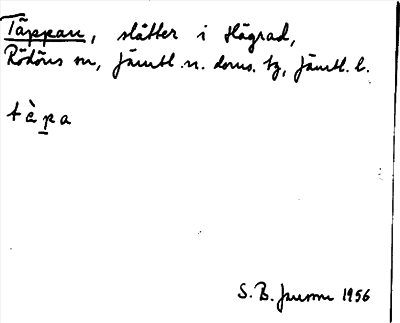 Täppan, slåtter i Hägrad,
Rödöns sn, Jämtl. n. doms. tg, Jämtl. l.
tàpa
S. B. 1956